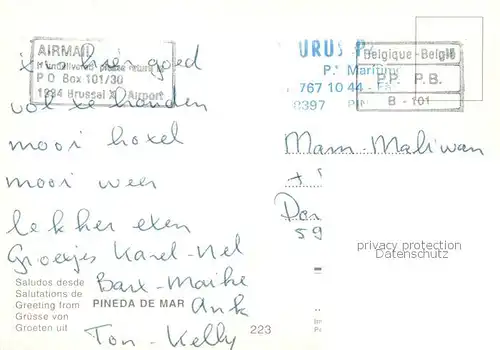 AIRMAIL
If undelivered please return
P O Box 101/30
1234 Brussel X Airport
hier goed
vol te houden
mooi hotel
mooi weer
lekker eten
Groetjes Karel-Nel
Bart-Maike
Ank
Ton-Kelly
Saludos desde
Salutations de
Greeting from
Grüsse von
Groeten uit
PINEDA DE MAR
223
URUS P
P. Maritim
767 10 44
8397
Belgique-België
P.P. P.B.
B - 101
Mam-Maliwan
+
59
privacy protection
Datenschutz